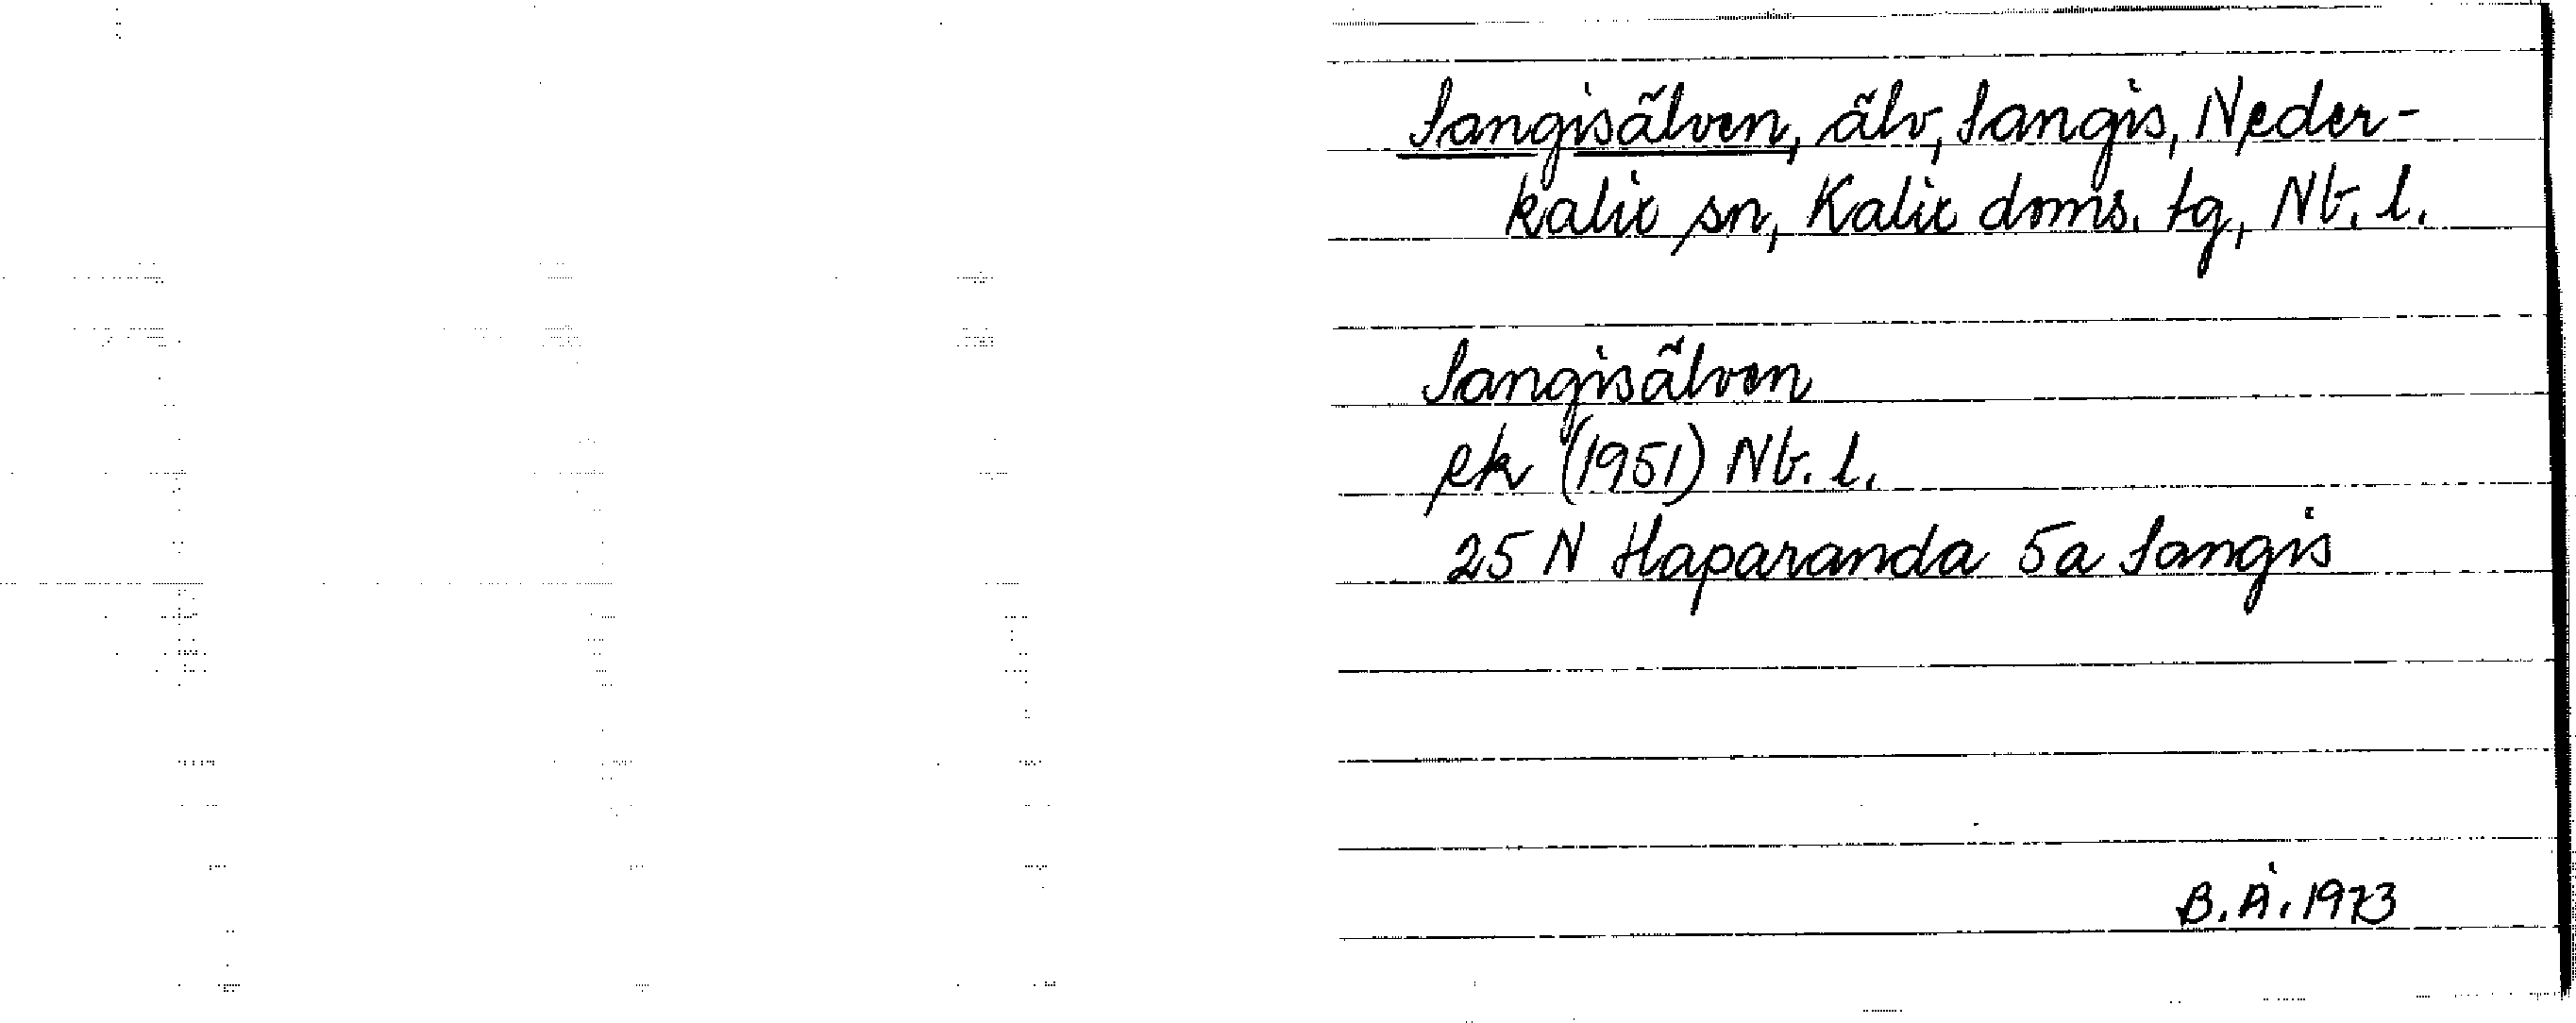 Sangisälven, älv, Sangis, Neder-
kalix sn, Kalix doms. tg, Nb. l.
Sangisälven
ek (1951) Nb. l.
25 N Haparanda 5a Sangis
B. Å. 1973